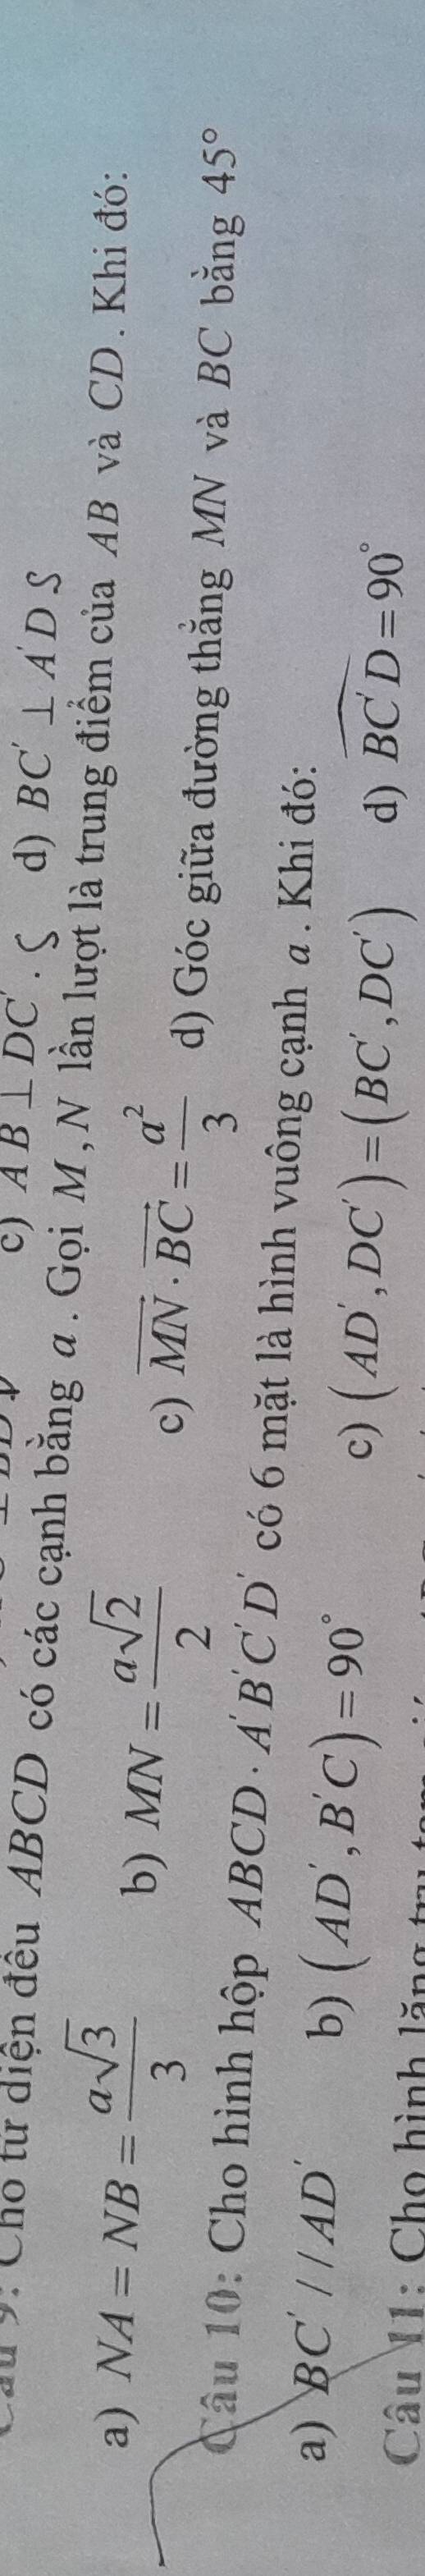 c) A'B ⊥ DC'. S d) BC' ⊥ A'D S
Câu 9: Cho tứ diện đều ABCD có các cạnh bằng a. Gọi M, N lần lượt là trung điểm của AB và CD. Khi đó:
a) NA = NB = a√3/3 b) MN = a√2/2 c) MN→ · BC→ = a²/3 d) Góc giữa đường thẳng MN và BC bằng 45°
Câu 10: Cho hình hộp ABCD·A'B'C'D' có 6 mặt là hình vuông cạnh a. Khi đó:
a) BC' // AD' b) (AD', B'C) = 90° c) (AD', DC') = (BC', DC') d) BC'D = 90°
Câu 11: Cho hình lăng trụ tam